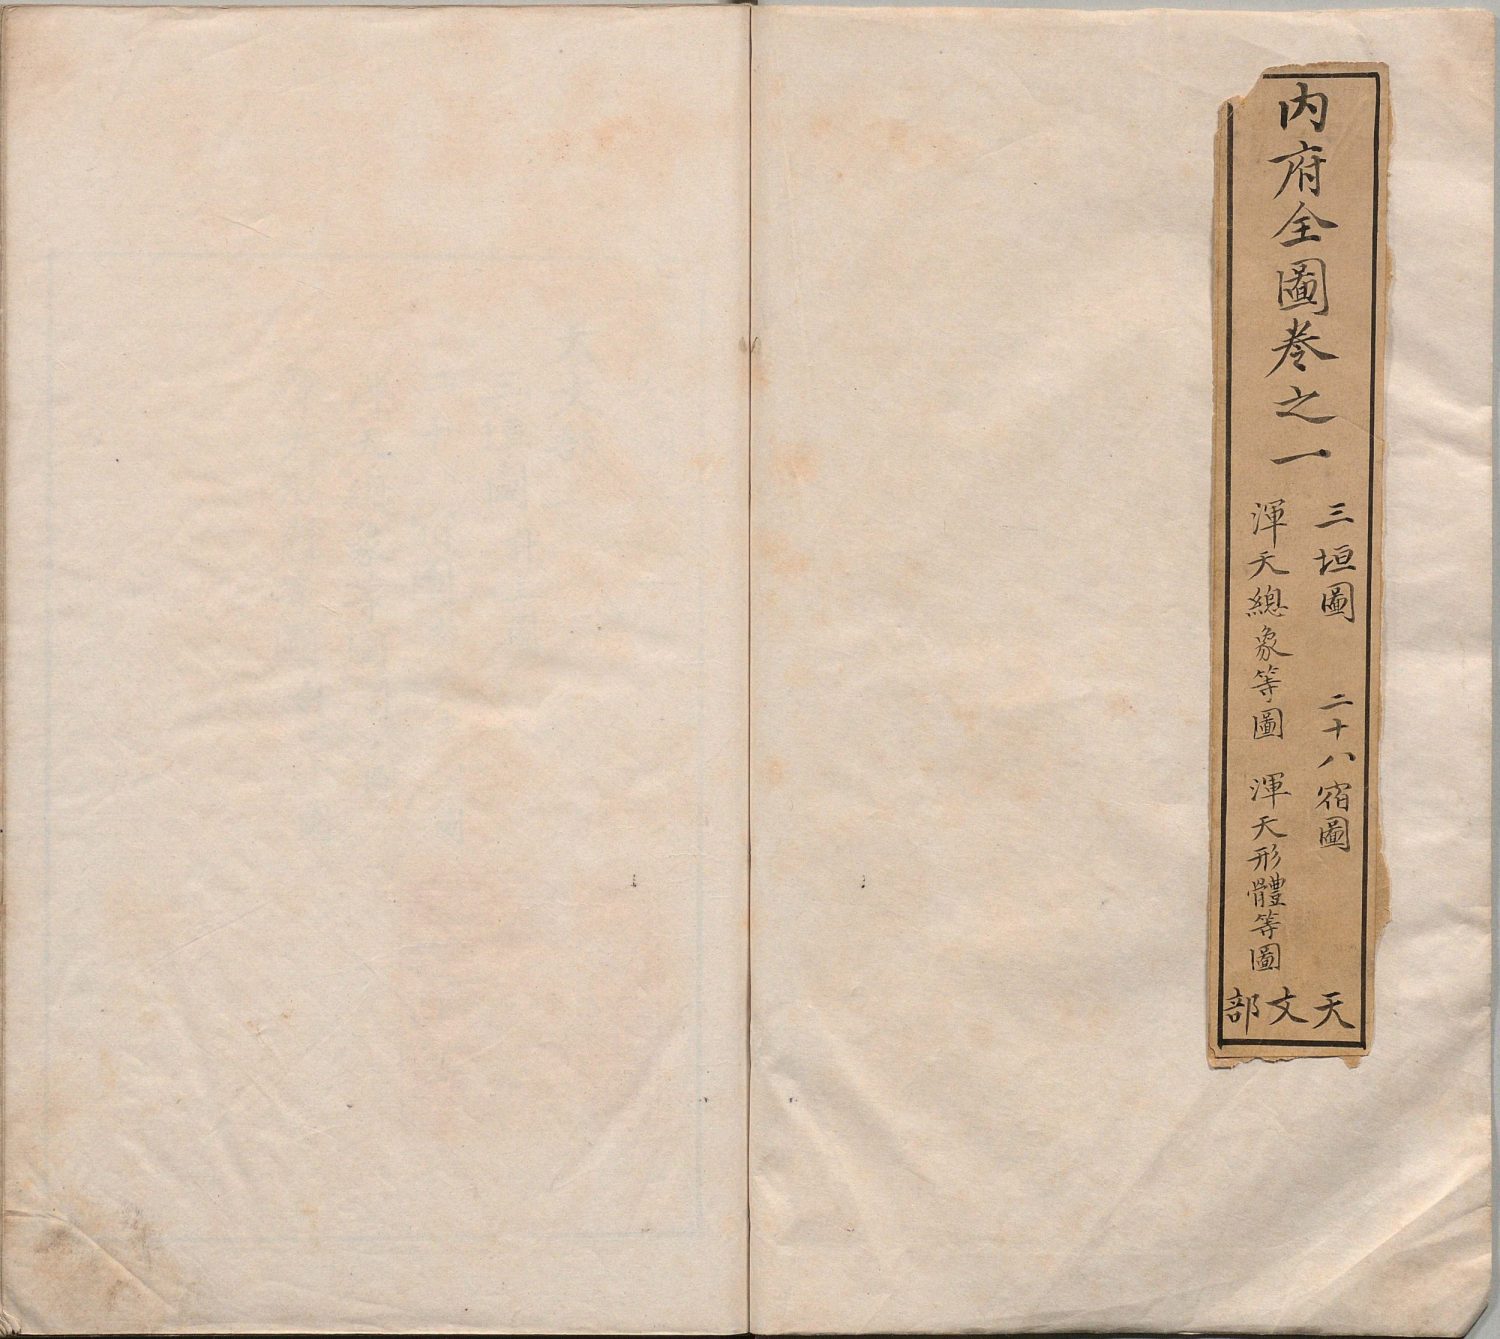 内府全圖卷之一
三垣圖 二十八宿圖
渾天總象等圖 渾天形體等圖
天文部